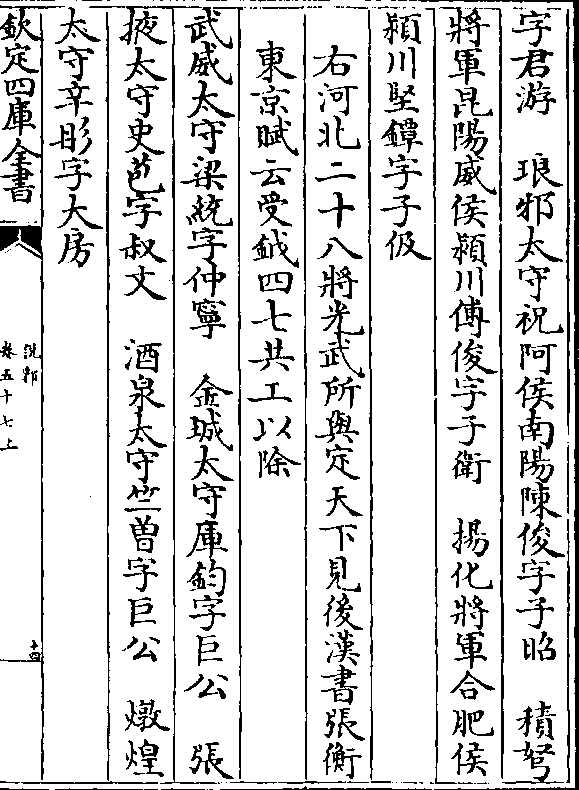 字君游　琅邪太守祝阿侯南陽陳俊字子昭　積弩
將軍昆陽威侯潁川傅俊字子衛　揚化將軍合肥侯
潁川堅鐔字子伋
右河北二十八將光武所與定天下見後漢書張衡
東京賦云受鉞四七共工以除
武威太守梁統字仲寧　金城太守庫鈞字巨公　張
掖太守史苞字叔文　酒泉太守竺曽字巨公　燉煌
太守辛肜字大房
欽定四庫全書
說郛
卷五十七上
十四